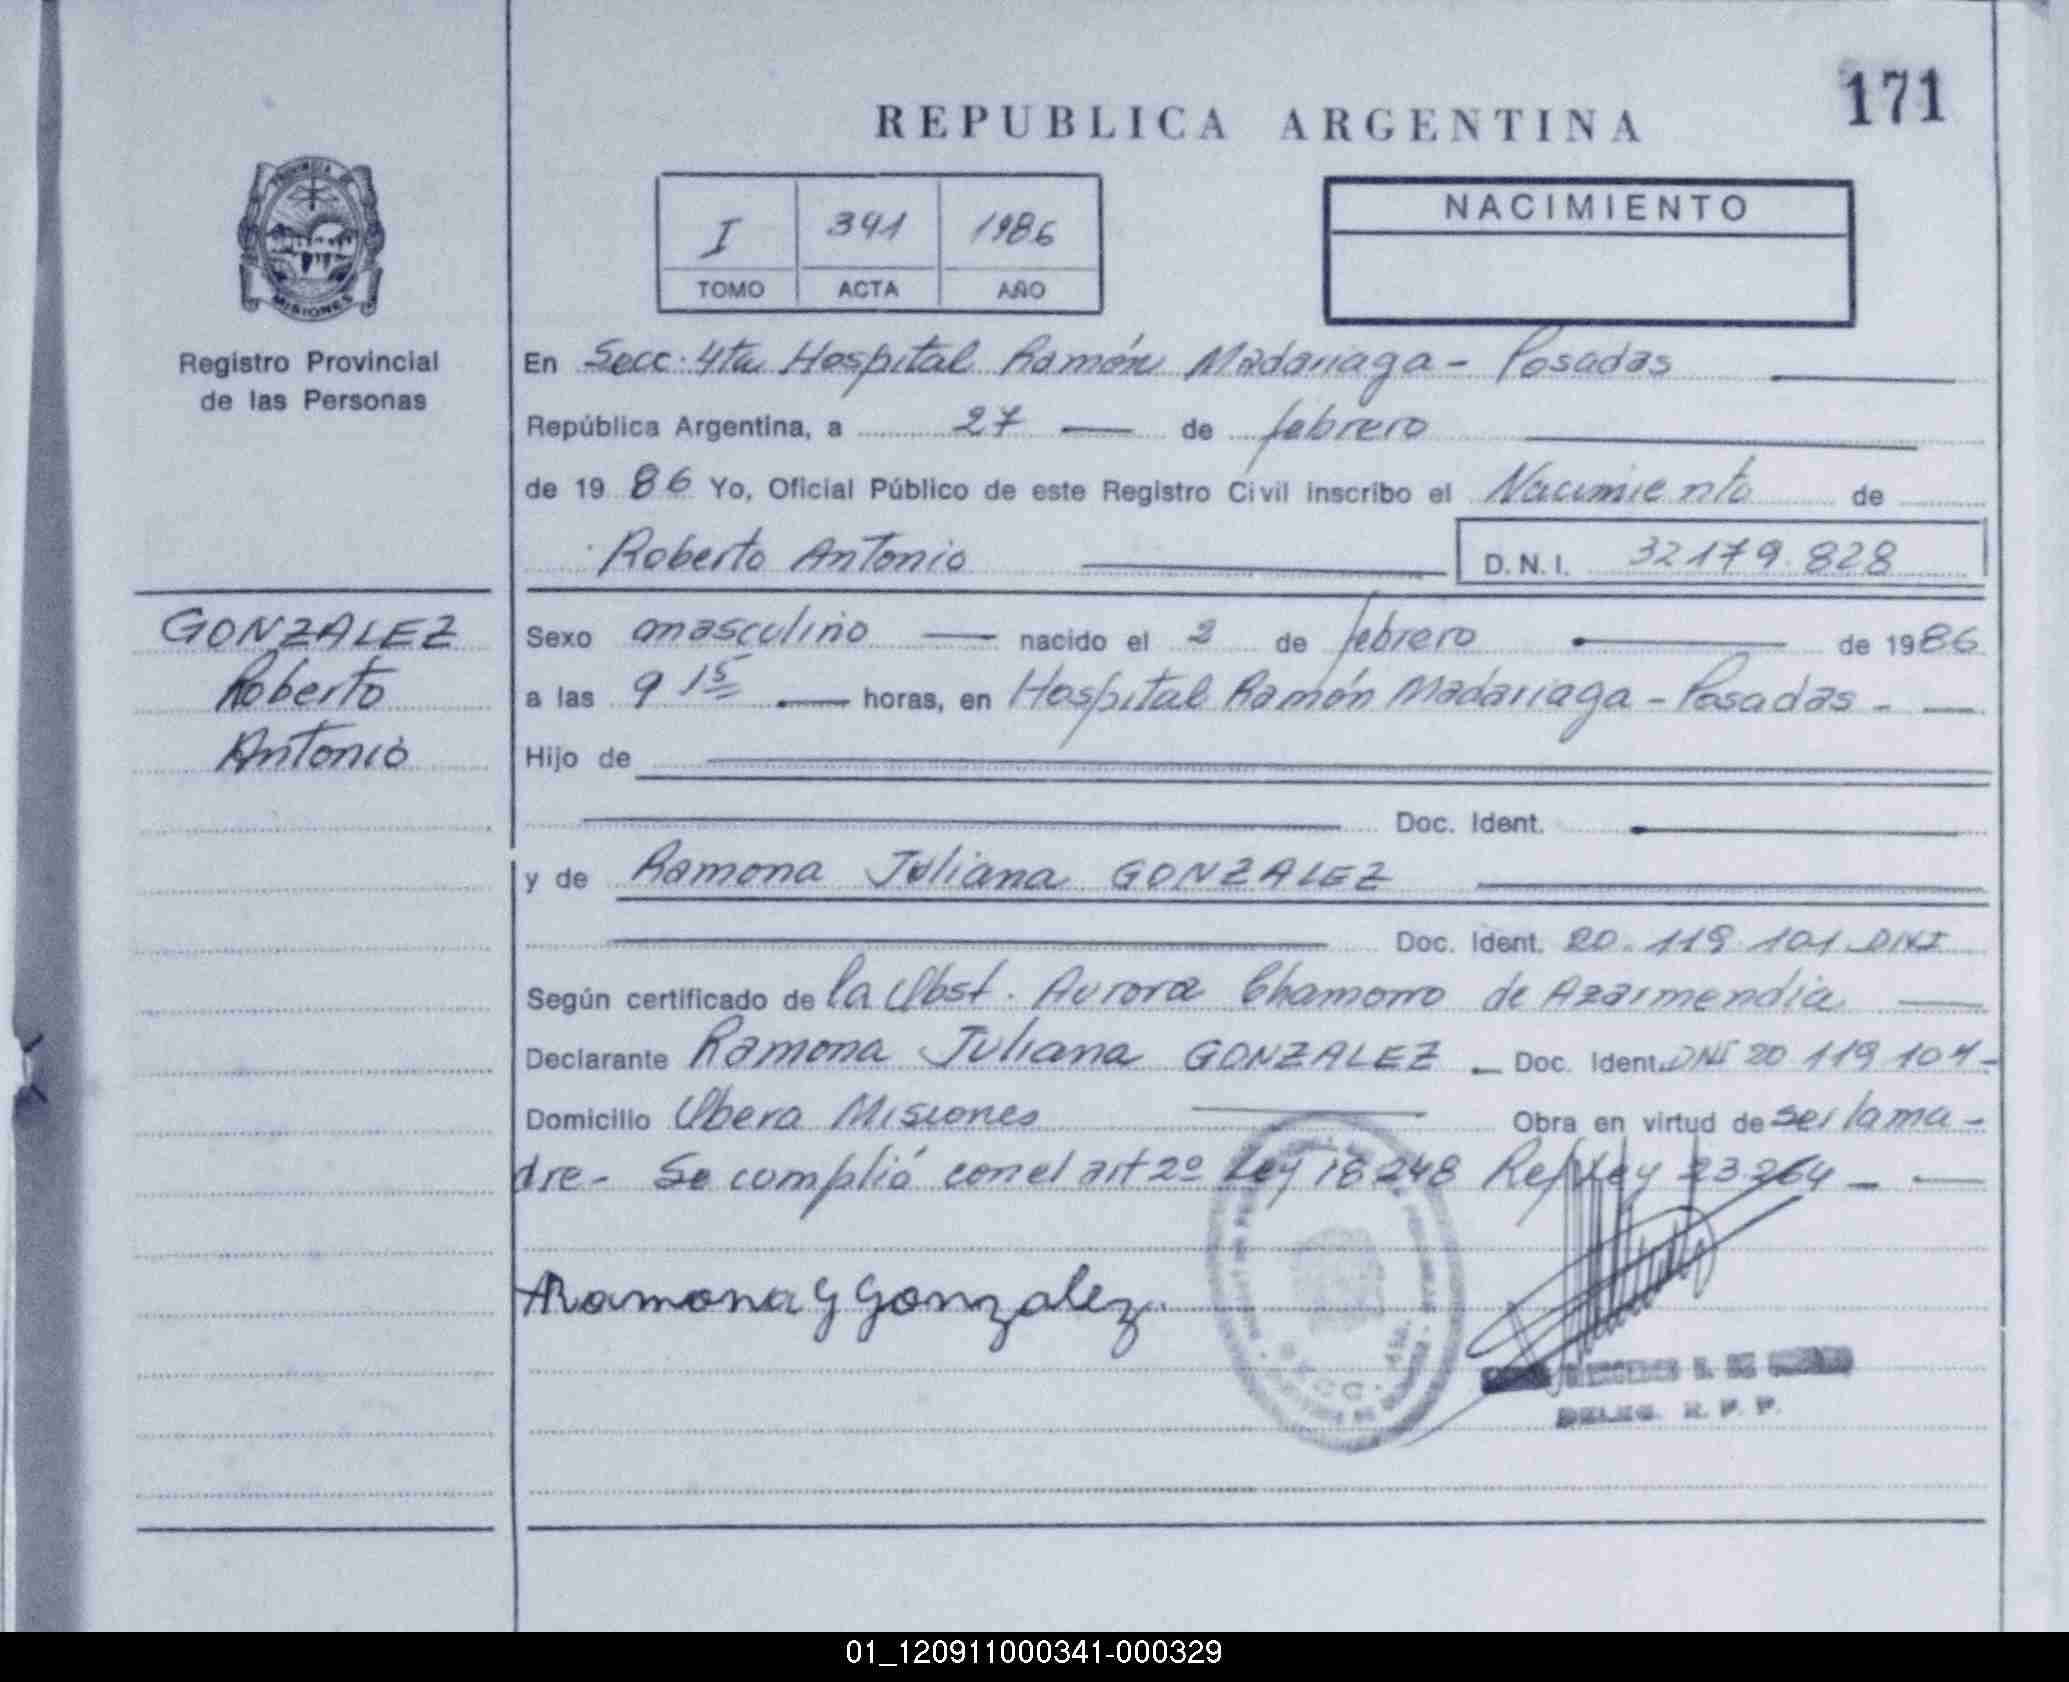 171
REPUBLICA ARGENTINA
I 341 1986
TOMO ACTA AÑO
NACIMIENTO
PROVINCIA DE
MISIONES
Registro Provincial
de las Personas
En Secc. 4ta Hospital Ramón Madariaga - Posadas
República Argentina, a 27 de febrero
de 1986 Yo, Oficial Público de este Registro Civil inscribo el Nacimiento de
Roberto Antonio D.N.I. 32179.828
GONZALEZ
Roberto
Antonio
Sexo masculino nacido el 2 de febrero de 1986
a las 9 15 horas, en Hospital Ramón Madariaga - Posadas -
Hijo de
Doc. Ident.
y de Ramona Juliana GONZALEZ
Doc. Ident. 20.119.101 DNI
Según certificado de la Obst. Aurora Chamorro de Azarmendia
Declarante Ramona Juliana GONZALEZ - Doc. Ident. DNI 20 119 101-
Domicilio Obera Misiones Obra en virtud de ser la ma-
dre- Se cumplió con el art 2º Ley 18248 Ref Ley 23.264 -
Ramona J Gonzalez.
DELEG. R. P. P.
01_120911000341-000329